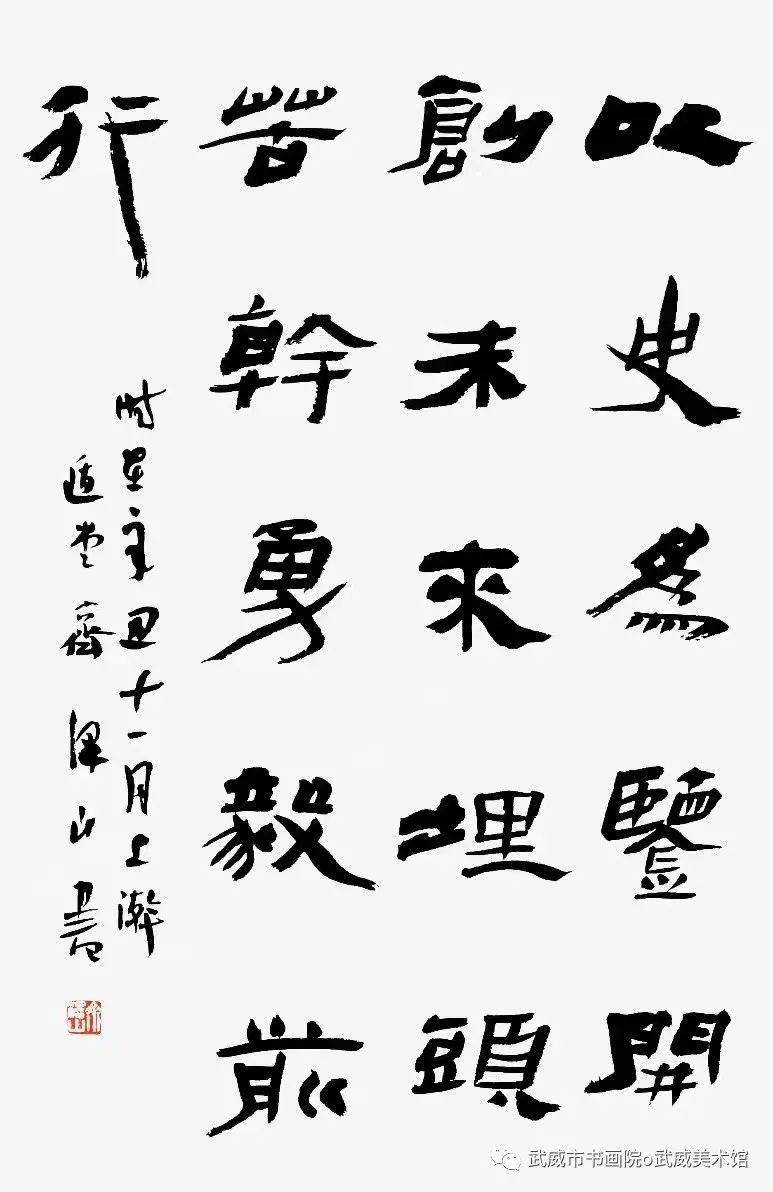 以史為鑒開
創未來埋頭
苦幹勇毅前
行
时在辛丑十一月上澣
堂齊山書
武威市书画院o武威美术馆